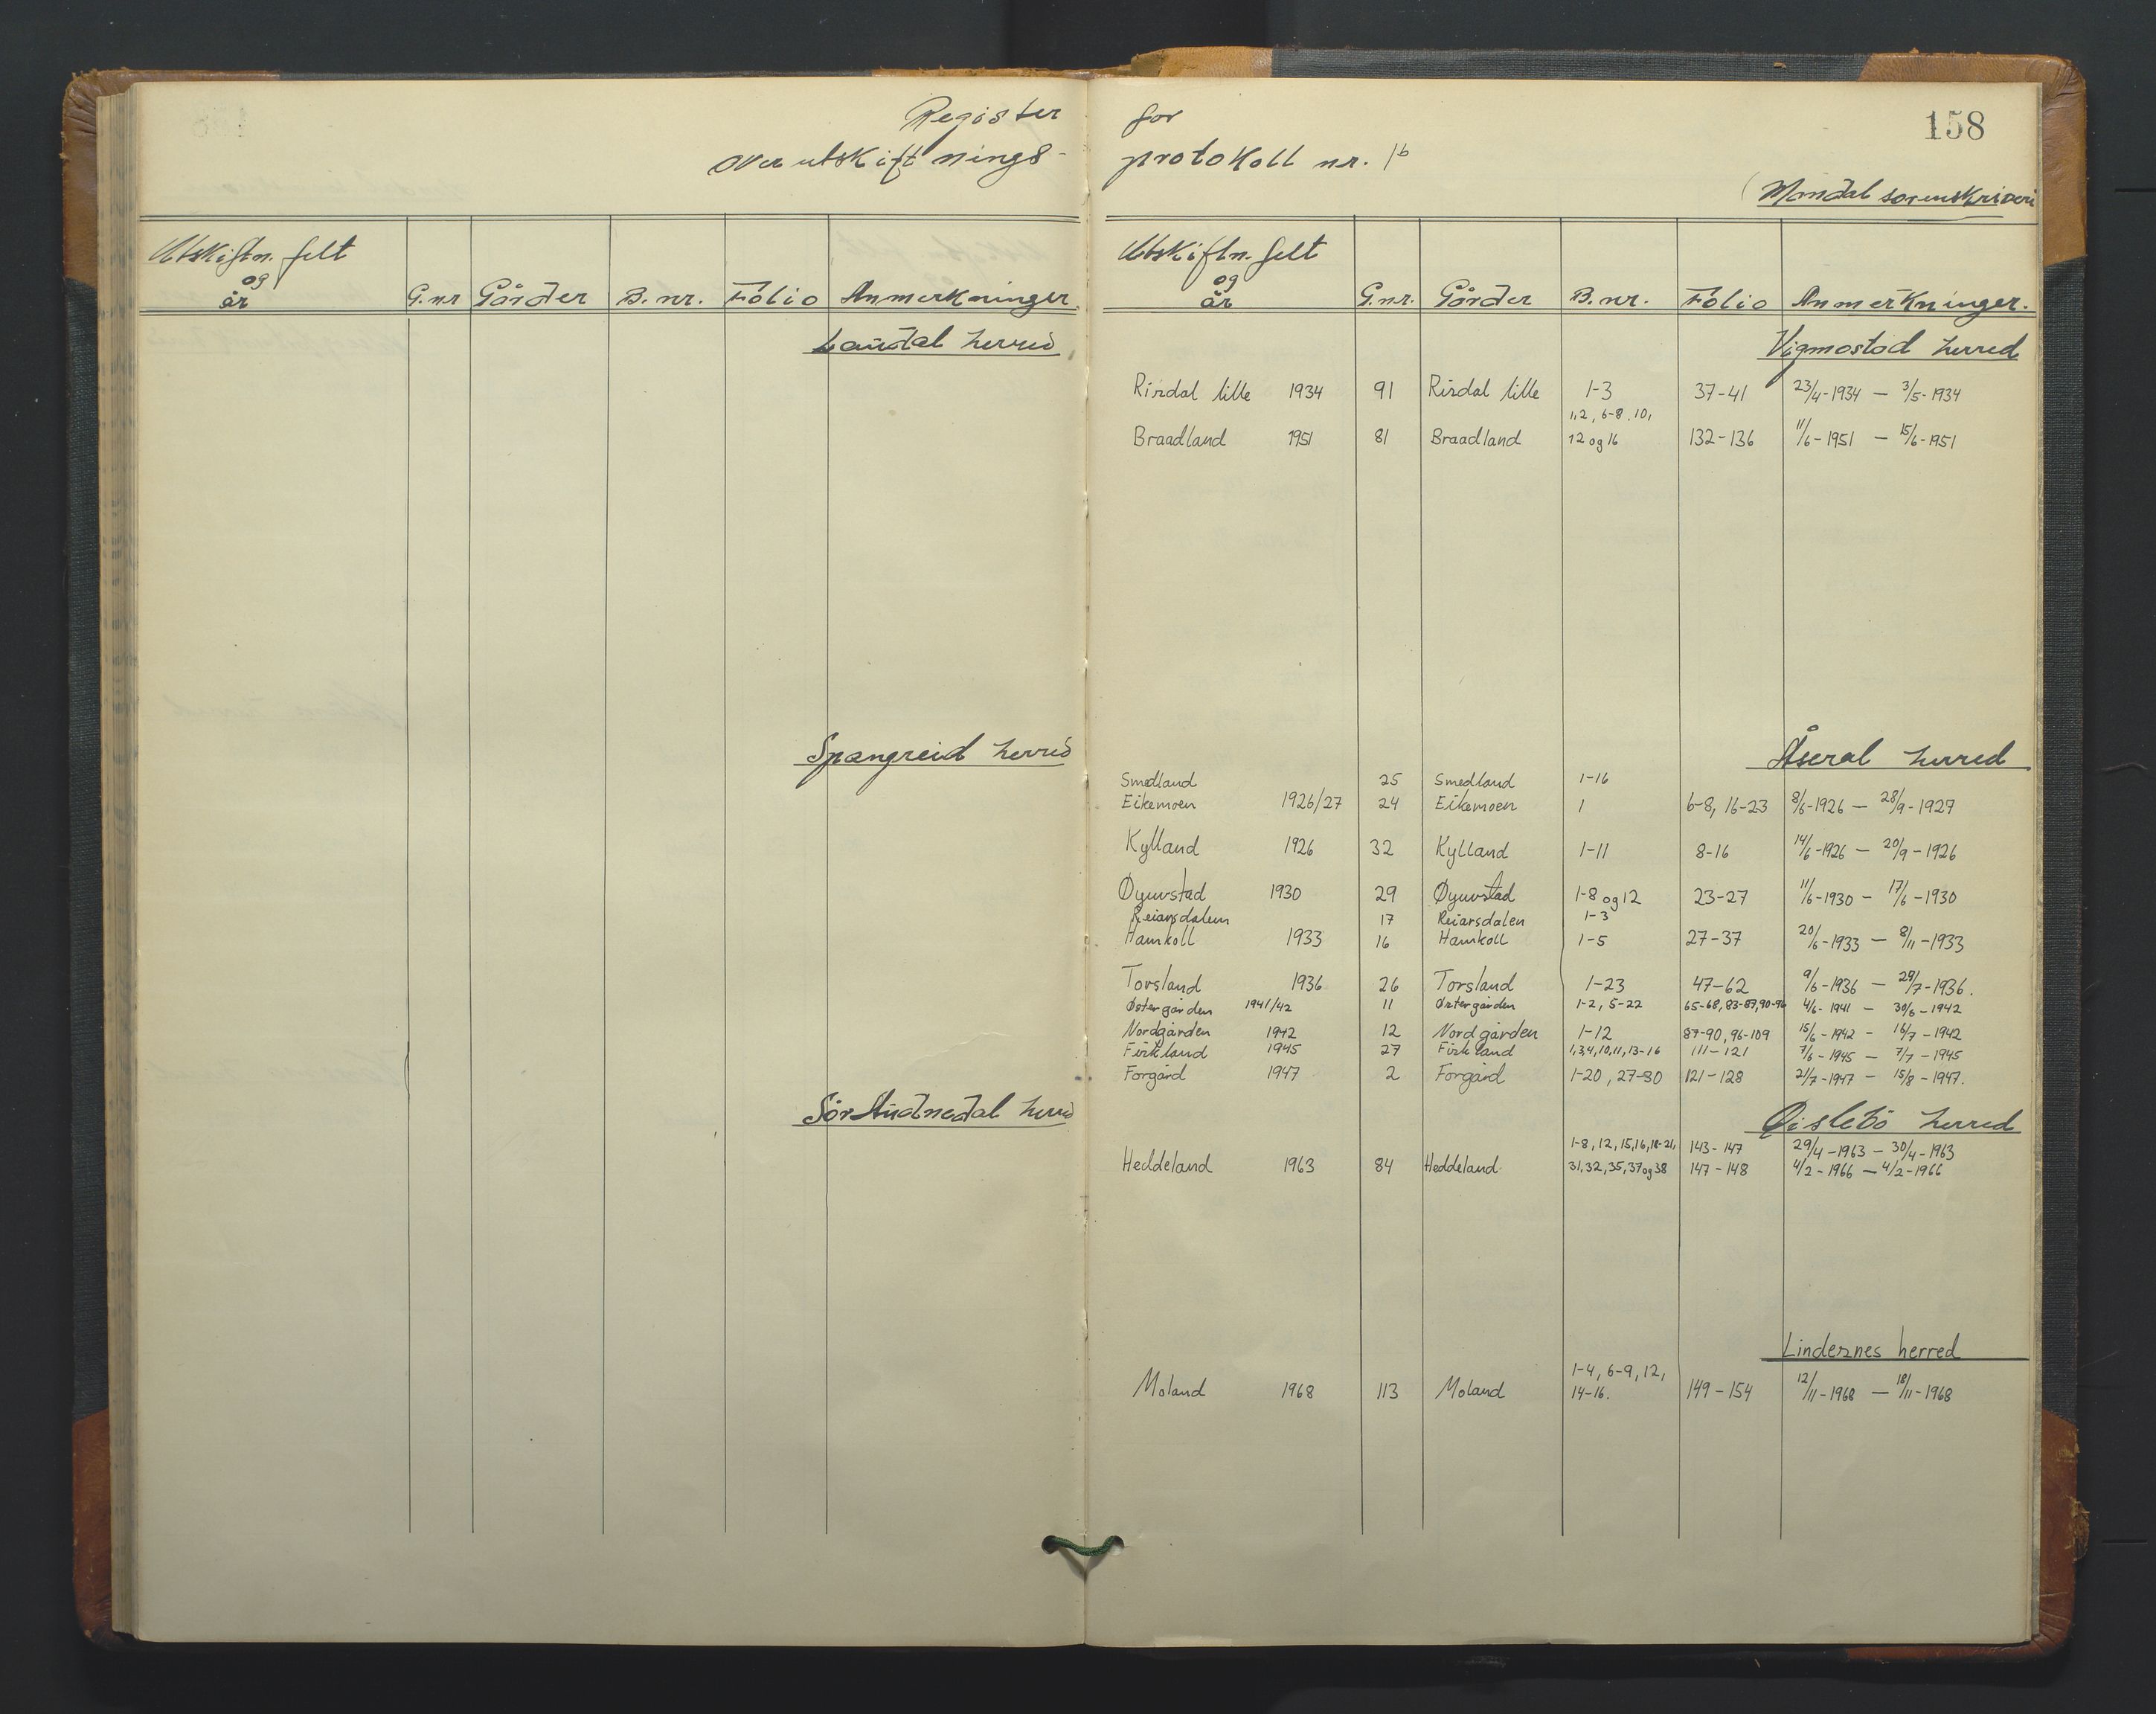 Register for
over utskiftnings- protokoll nr. 1b
158
(Mandal sorenskriveri
Utskiftn. felt og år G.nr Gårder B.nr. Folio Anmerkninger.
Laudal herred
Spangreid herred
Sør Audnedal herred
Utskiftn. felt og år G.nr. Gårder B.nr. Folio Anmerkninger.
Vigmostad herred
Risdal lille 1934 91 Risdal lille 1-3 37-41 23/4-1934 — 3/5-1934
1,2, 6-8, 10,
Braadland 1951 81 Braadland 12 og 16 132-136 11/6-1951 — 15/6-1951
Åseral herred
Smedland 25 Smedland 1-16
Eikemoen 1926/27 24 Eikemoen 1 6-8, 16-23 8/6-1926 — 28/9-1927
Kylland 1926 32 Kylland 1-11 8-16 14/6-1926 — 20/9-1926
Øyurstad 1930 29 Øyurstad 1-8 og 12 23-27 11/6-1930 — 17/6-1930
Reiarsdalen 17 Reiarsdalen 1-3
Hamkoll 1933 16 Hamkoll 1-5 27-37 20/6-1933 — 8/11-1933
Torsland 1936 26 Torsland 1-23 47-62 9/6-1936 — 29/7-1936.
Østergården 1941/42 11 Østergården 1-2, 5-22 65-68, 83-87, 90-96 4/6-1941 — 30/6-1942
Nordgården 1942 12 Nordgården 1-12 87-90, 96-109 15/6-1942 - 16/7-1942
Firkland 1945 27 Firkland 1,3,4,10,11,13-16 111-121 7/6-1945 — 7/7-1945
Forgård 1947 2 Forgård 1-20, 27-30 121-128 2/7-1947 — 15/8-1947.
Øislebö herred
1-8, 12, 15,16,18-21, 143-147 29/4-1963 — 30/4-1963
Heddeland 1963 84 Heddeland 31,32,35,37 og 38 147-148 4/2-1966 — 4/2-1966
Lindesnes herred
1-4, 6-9, 12,
Moland 1968 113 Moland 14-16. 149-154 12/11-1968 — 18/11-1968